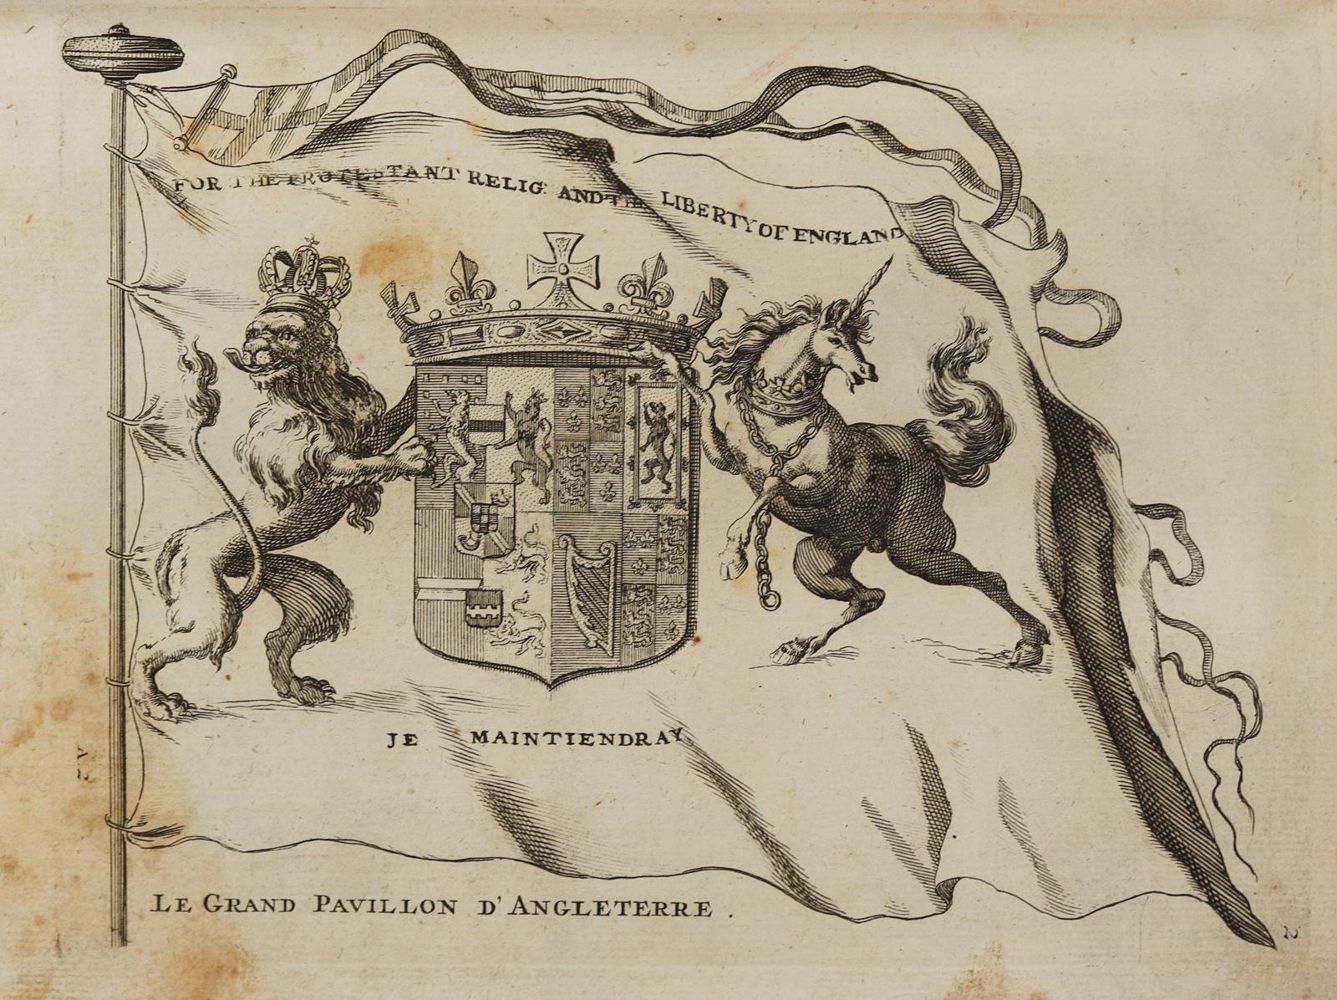 FOR THE PROTESTANT RELIG: AND THE LIBERTY OF ENGLAND
JE MAINTIENDRAY
LE GRAND PAVILLON D'ANGLETERRE .
2